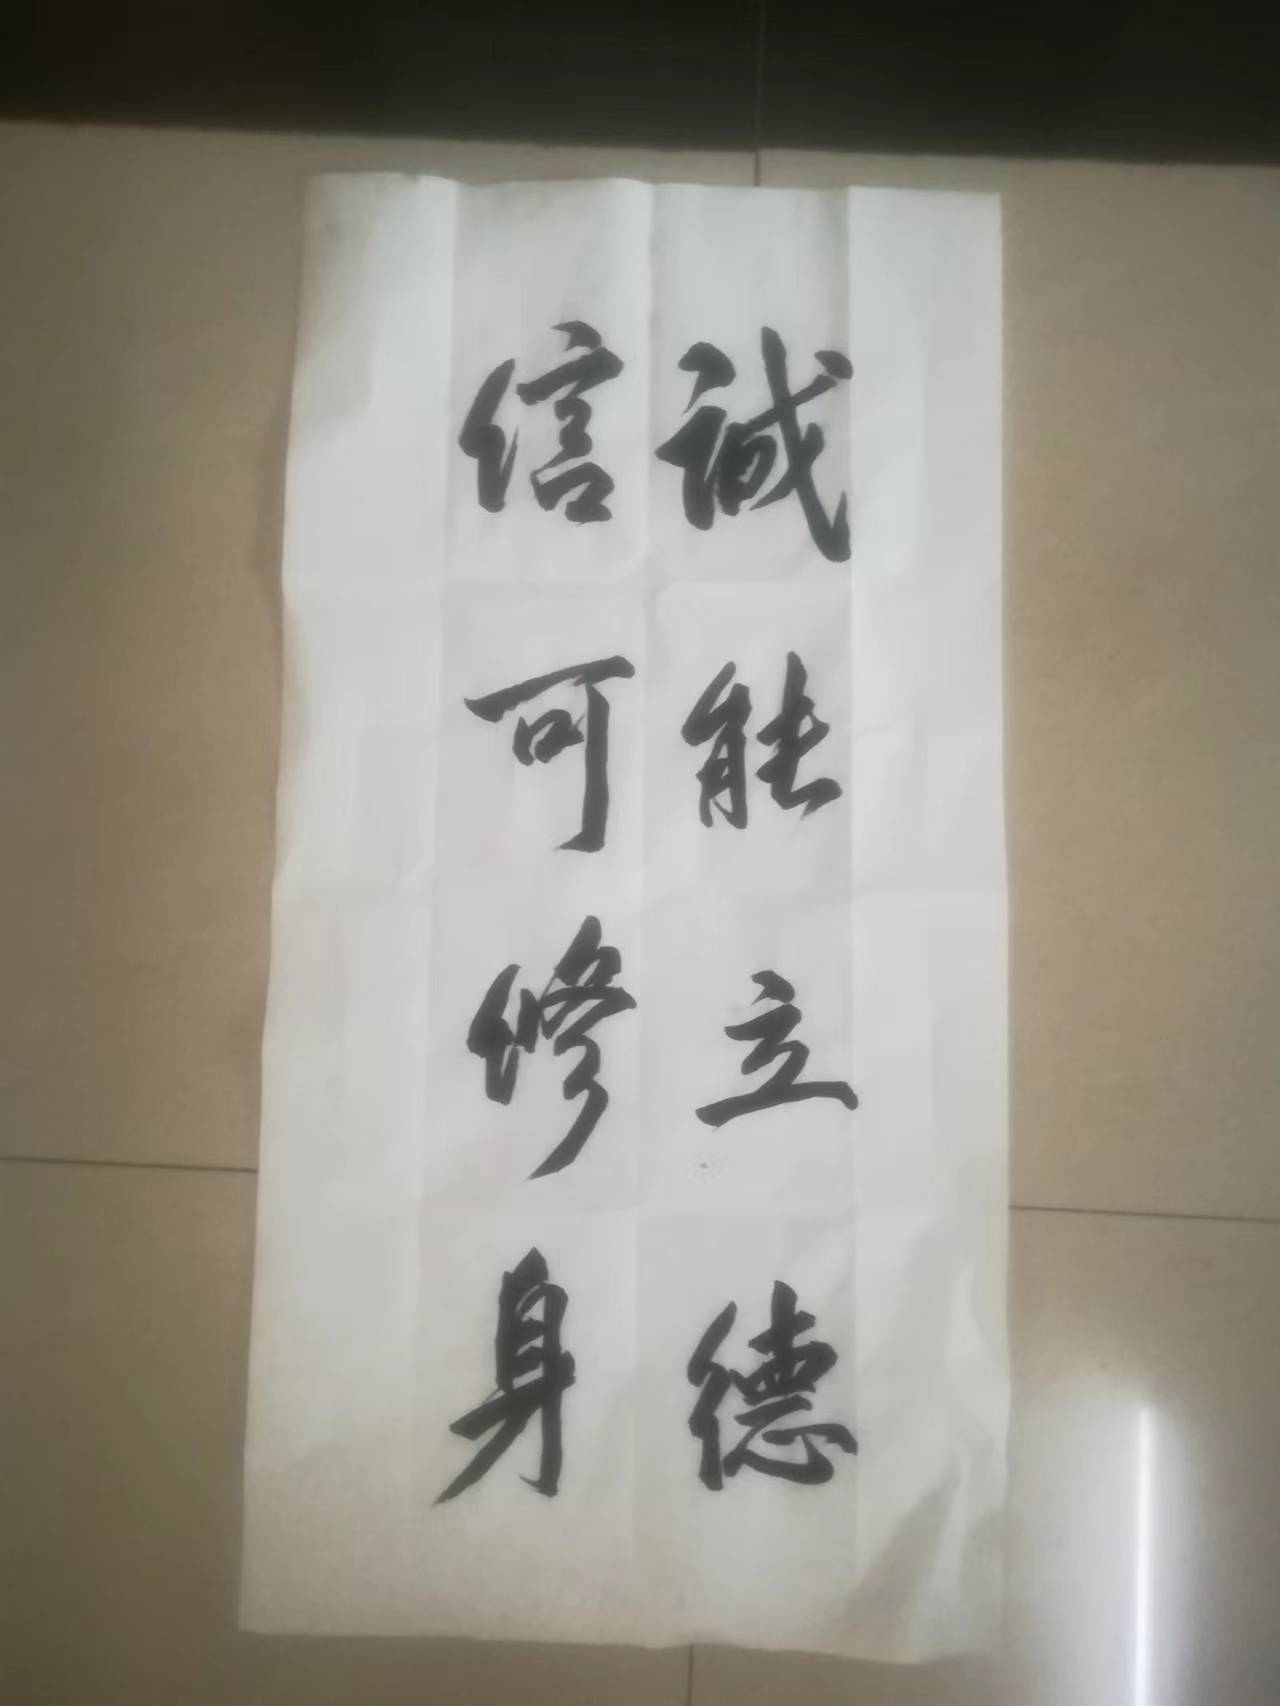 誠能立德
信可修身